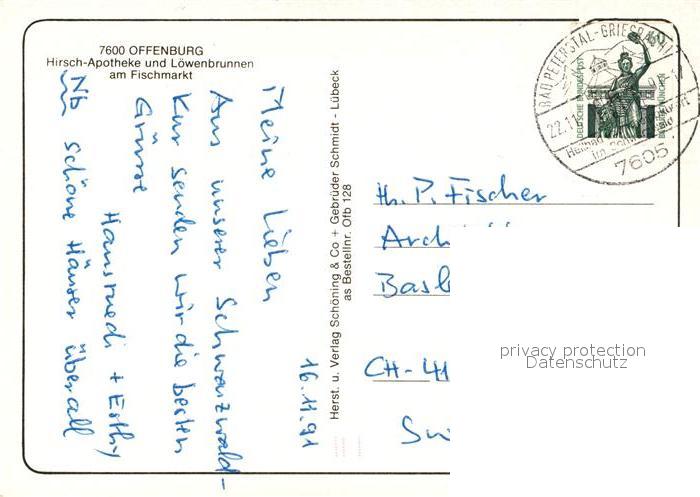 7600 OFFENBURG
Hirsch-Apotheke und Löwenbrunnen
am Fischmarkt
16.11.91
Meine Lieben
Aus unserer Schwarzwald-
Kur senden wir die besten
Grüsse
Hansruedi + Esthy
Nb schöne Häuser überall
Herst. u. Verlag Schöning & Co + Gebrüder Schmidt - Lübeck
as Bestellnr. Ofb 128
BAD PETERSTAL-GRIESBACH
22.11
Heilbad
im
7605
DEUTSCHE BUNDESPOST
60
BAVARIA MÜNCHEN
P. Fischer
Arch
Basl
CH-41
privacy protection
Datenschutz